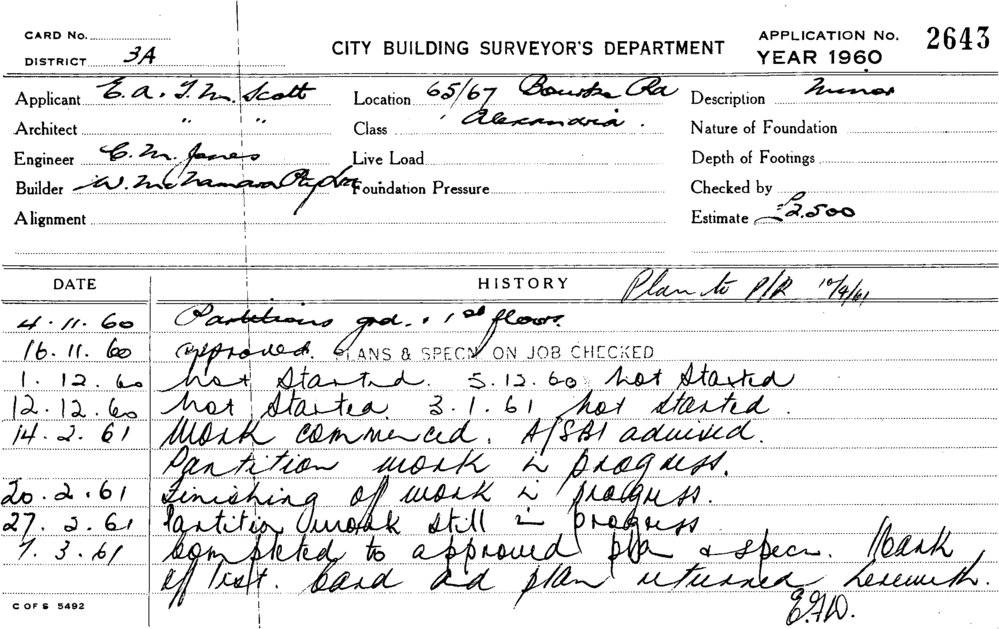 CARD No.
DISTRICT 3A
CITY BUILDING SURVEYOR'S DEPARTMENT
APPLICATION No. 2643
YEAR 1960
Applicant E. A. & T. M. Scott
Location 65/67 Bourke Rd
Description Minor
Architect " "
Class Alexandria.
Nature of Foundation
Engineer C. M. Jones
Live Load
Depth of Footings
Builder W. McNamara Pty Ltd
Foundation Pressure
Checked by
Alignment
Estimate £2,500
DATE
HISTORY
Plan to P/R 10/4/61
4.11.60 Partitions grd. & 1st floor.
16.11.60 approved. PLANS & SPECN ON JOB CHECKED
1.12.60 not started. 5.12.60 not started
12.12.60 not started. 3.1.61 not started.
14.2.61 Work commenced. A/SBI advised.
Partition work in progress.
20.2.61 Finishing of work in progress.
27.2.61 Partition work still in progress
7.3.61 Completed to approved plan & specn. Mark
off list. Card and plan returned herewith.
C OF S 5492